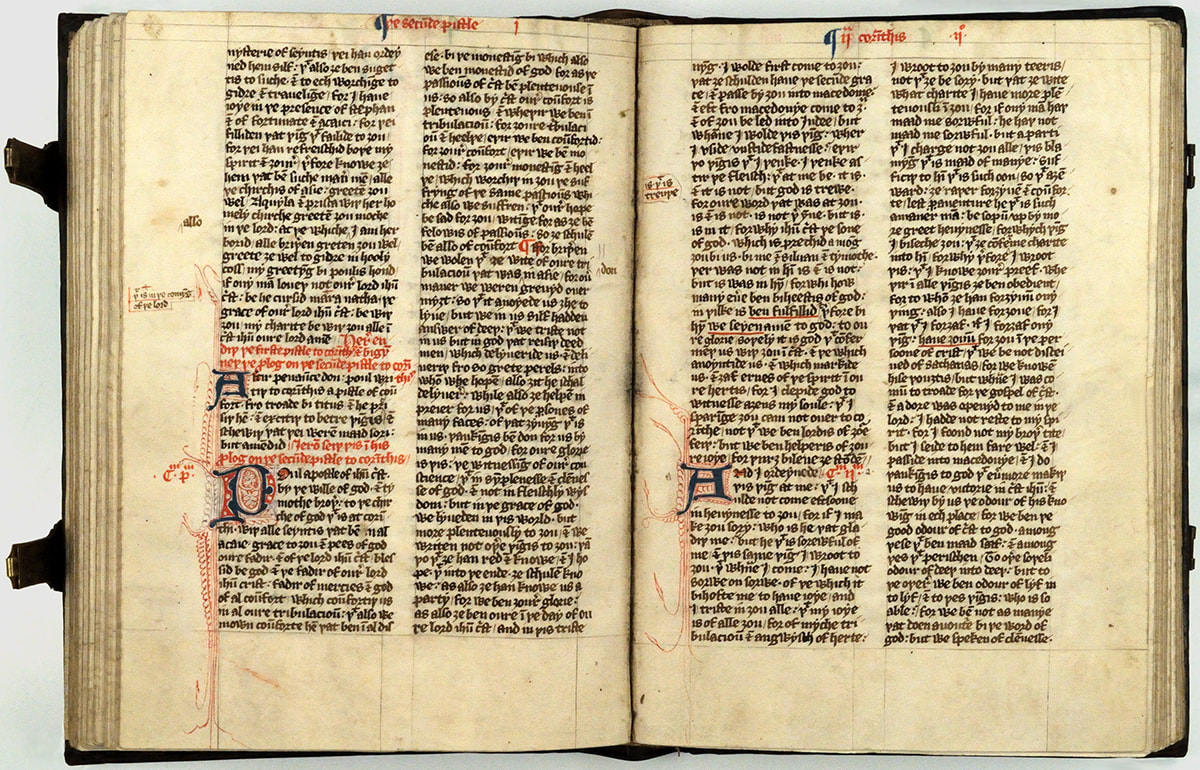 ¶ ye secūde pistle i
mysterie of seyntis yei han ordey
ned hem silf: yᵗ also ȝe ben suget
tis to suche · ⁊ to ech worchinge to
gidre ⁊ traueilige / for I haue
ioye in ye presence of stephan
⁊ of fortunate ⁊ acaici: for yei
filliden yat yīg yᵗ failide to ȝou /
for yei han refreischid boye my
spirit ⁊ ȝourȝ / yfore knowe ȝe
hem yat be suche man̄ mē / alle
ye chirchis of asie: greetē ȝou
wel / Aquyla ⁊ prisca wiy her ho
mely chirche greetē ȝou moche
in ye lord: at ye whiche / I am her
borid / alle briyen greten ȝou wel /
greete ȝe wel to gidre in hooly
coss / my greetyg bi poulis hond /
if ony mā loueȝ not our lord ihū
cᵗst: be he cursid mara natha / ye
grace of our lord ihū cᵗst: be wiy
ȝou / my charite be wiy ȝou alle ī
cᵗst ihū oure lord amē / Heȝ en
diy ye firste pistle to corinthis ⁊ bigȳ
neȝ ye plog on ye secūde pistle to coriⁿ
thⁱˢ
Aftir penaunce don · poul wri
tiȝ to corinthis a pistle of cou
fort · fro troade bi titus ⁊ he prei
siȝ hē · ⁊ excitiȝ to bettre yīgis ⁊
schewiȝ yat yei weren maad sori:
but amēdid / Jerō seiȝ yis ī his
plog on ye secūde pistle to corīthis /
Cᵐ pᵐ
Poul apostle of ihū cᵗst ·
by ye wille of god · ⁊ ty
mothe broyᵗ: to ye chir
che of god yᵗ is at corī
thi · wiy alle seyntis yat bē ī al
acaie / grace to ȝou ⁊ pees of god
oure fadir · ⁊ of ye lord ihū cᵗst / bles
sid be god ⁊ ye fadir of our lord
ihū crist · fadir of mercies ⁊ god
of al coūfort / which coūfortiȝ us
in al oure tribulaciou / yᵗ also we
mown coūforte hē yat ben ī al dis
also
yᵗ is in ye comȳg
of ye lord
ese · bi ye monestīg bi which also
we ben monestid of god · for as ye
passiouns of cᵗst bē plenteuouse ī
us: so also by cᵗst our coūfort is
plenteuous / ⁊ wheyir we ben ī
tribulaciou: for ȝoure tᵗbulaci
ou ⁊ heelye / eyir we ben coūfortid:
for ȝour coūfort / eyir we bē mo
nestid: for ȝour monestīg ⁊ heel
ye / which worchiȝ in ȝou ye suf
frȳng of ye same passiouns whi
che also we suffren / yᵗ our hope
be sad for ȝou / witīge · for as ȝe bē
felowis of passiouns: so ȝe schulē
bē also of coūfort ¶ for briyen
we wolen yᵗ ȝe wite of oure tri
bulaciou yat was in asie / for ouᵗ
maner we weren greuyd ouer
myȝt: so yᵗ it anoyede us ȝhe to
lyue / but we in us silf hadden
answer of deey: yᵗ we triste not
in us but in god yat reisiȝ deed
men / which delyueride us · ⁊ deli
ueriȝ fro so grete perels: into
who whe hope / also ȝit he schal
delyuer: While also ȝe helpe in
preier for us / yᵗ of ye psones of
many faces: of yat ȝyuȳg yᵗ is
in us / yankigis bē don for us by
many mē to god / for oure glorie
is yis: ye witnessīg of our con
science / yᵗ in sȳplenesse ⁊ clennes
se of god · ⁊ not in fleischly wys
dom: but in ye grace of god ·
we lyueden in yis world · but
more plenteuously to ȝou / ⁊ we
writen not oyᵗe yīgis to ȝou: yā
yoᵗ yᵗ ȝe han red ⁊ knowe / ⁊ I ho
pe · yᵗ into ye ende · ȝe schule kno
we: as also ȝe han knowe us a
party / for we ben ȝour glorie:
as also ȝe ben oure ī ye day of ou
re lord ihū cᵗst / and in yis triste
don
¶ ii corīthis ii°
nȳg · I wolde first come to ȝou:
yat ȝe schulden haue ye secūde gra
ce / ⁊ passe by ȝou into macedonie ·
⁊ eft fro macedonye come to ȝou ·
⁊ of ȝou be led into Iudee / but
whāne I wolde yis yīg: wheyᵗ
I vside vnstidefastnesse: eyir
yo yīgis yᵗ I yenke · I yenke af
tir ye fleisch: yᵗ at me be · it is ·
⁊ it is not / but god is trewe ·
for oure word yat was at ȝou:
is ⁊ is not · is not ī yᵗ ine · but is ·
is in it / for whi ihū cᵗst ye sone
of god · which is prechid amōg
ȝou bi us · bi me ⁊ siluan · ⁊ tymothe
yer was not in hī is ⁊ is not:
but is was in hȳ / for whi how
many eūe ben biheestis of god:
in yilke is ben fulfillid / yᵗfore bi
hȳ we seyen amē to god: to ou
re glorie / soyely it is god yᵗ cōfer
meȝ us wiȝ ȝou in cᵗst · ⁊ ye which
anoyntide us · ⁊ which markide
us · ⁊ ȝaf ernes of ye spirit ī ou
re hertis / for I clepide god to
witnesse aȝens my soule / yᵗ I
sparīge ȝou cam not ouer to co
rīthe / not yᵗ we ben lordis of ȝoure
feiy: but we ben helperis of ȝou
re ioye / for yurȝ bileue ȝe stōdē /
is · yᵗ is
trewye
And I ordeynede Cᵐ iiᵐ
yis yīg at me: yᵗ I sch
ulde not come eftsoone
in heuynesse to ȝou / for if I ma
ke ȝou sory: who is he yat gla
diȝ me: but he yᵗ is soreuful of
me / ⁊ yis same yīg I wroot to
ȝou / yᵗ whāne I come: I haue not
sorwe on sorwe · of ye which it
bihofte me to haue ioye / and
I triste in ȝou alle: yᵗ my ioye
is of alle ȝou / for of myche tri
bulaciou ⁊ angwysch of herte:
I wroot to ȝou by many teeris /
not yᵗ ȝe be sory · but yat ȝe wite
what charite I haue more plē
teuousli ī ȝou / for if ony mā haȝ
maad me sorwful: he haȝ not
maad me sorwful but a parti ·
yᵗ I charge not ȝou alle / yis bla
mȳg yᵗ is maad of manye: suf
ficiȝ to hī yᵗ is such oon / so yᵗ aȝē
ward: ȝe raȝer forȝyue ⁊ coūfor
te / lest paraueture he yᵗ is such
amaner mā: be sopū vp by mo
re greet heuynesse / for which yīg
I biseche ȝou: yᵗ ȝe cōferme charite
into hī / for why yfore I wroot
yis: yᵗ I knowe ȝour preef · whe
yir ī alle yīgis ȝe ben obedient /
for to whō ȝe han forȝyuū ony
yīng: also I haue forȝoue / for I
yat yᵗ I forȝaf · if I forȝaf ony
yīg: haue ȝouū for ȝou ī ye per
soone of crist / yᵗ we be not discei
ued of sathanas / for we knowē
hise youȝtis / but whāne I was co
mū to troade for ye gospel of cᵗst ·
⁊ a dore was openyd to me in ye
lord: I hadde not reste to my spi
rit · for I foond not my broyᵗ tite /
but I seide to hem fare wel · ⁊ I
passide into macedonye / ⁊ I do
yankigis to god · yᵗ eūmore makiȝ
us to haue victorie in cᵗst ihū: ⁊
schewiȝ by us ye odour of his kno
wīg in ech place / for we ben ye
good odour of cᵗst to god · among
yese yᵗ ben maad saaf · ⁊ among
yes yᵗ perischen / To oyᵗe soyeli
odour of deey into deey: but to
ye oyeᵗ we ben odour of lyf in
to lyf / ⁊ to yes yīgis · who is so
able: for we bē not as manye
yat doen avoute bi ye word of
god: but we speken of clennesse ·